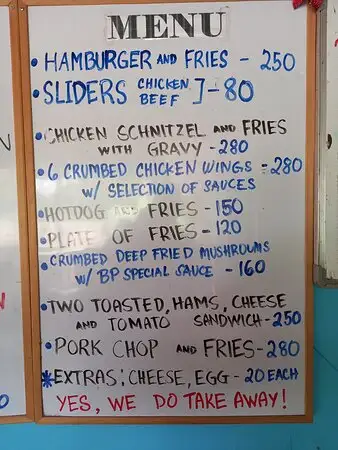 MENU
• HAMBURGER AND FRIES - 250
• SLIDERS CHICKEN BEEF ]-80
• CHICKEN SCHNITZEL AND FRIES
WITH GRAVY - 280
• 6 CRUMBED CHICKEN WINGS - 280
W/ SELECTION OF SAUCES
• HOTDOG AND FRIES - 150
• PLATE OF FRIES - 120
• CRUMBED DEEP FRIED MUSHROOMS
W/ BP SPECIAL SAUCE - 160
• TWO TOASTED, HAMS, CHEESE
AND TOMATO SANDWICH - 250
• PORK CHOP AND FRIES - 280
* EXTRAS: CHEESE, EGG - 20 EACH
YES, WE DO TAKE AWAY!